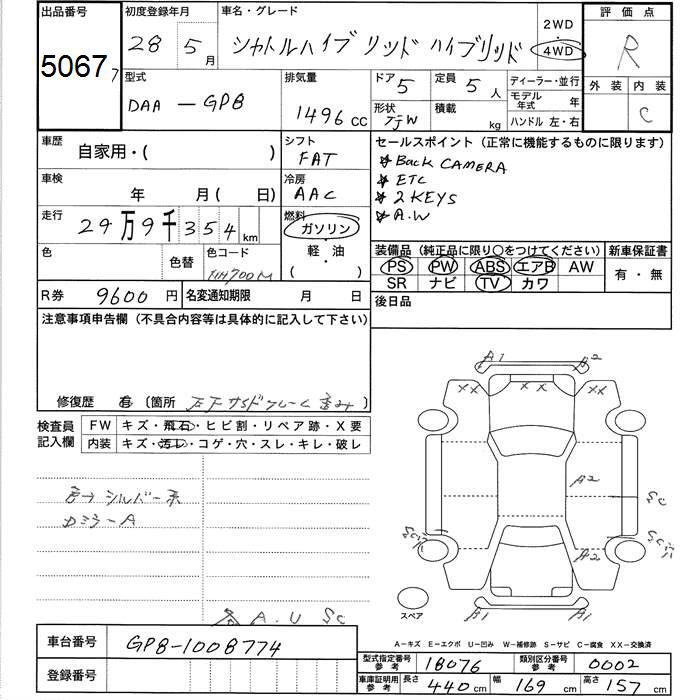 出品番号
5067 7
初度登録年月
28年 5月
車名・グレード
シャトルハイブリッド ハイブリッド
2WD
・
4WD
評価点
R
外装 内装
C
型式
DAA-GP8
排気量
1496cc
ドア 5
定員 5人
ディーラー・並行
モデル年式 年
形状 5W
積載 kg
ハンドル 左・右
車歴
自家用・( )
シフト
FAT
セールスポイント (正常に機能するものに限ります)
☆ Back CAMERA
☆ ETC
☆ 2 KEYS
☆ A.W
車検
年 月( 日)
冷房
AAC
走行
29万9千354km
燃料
ガソリン
・
軽・油
( )
色
色替
色コード
NH700M
装備品 (純正品に限り○をつけてください)
新車保証書
PS PW ABS エアB AW
SR ナビ TV カワ
有・無
R券 9600円
名変通知期限 月 日
後日品
注意事項申告欄 (不具合内容等は具体的に記入して下さい)
修復歴 有 〔箇所 左下サイドフレーム歪み〕
検査員記入欄
FW キズ・飛石・ヒビ割・リペア跡・X要
内装 キズ・汚レ・コゲ・穴・スレ・キレ・破レ
色→シルバー系
ミラーA
A.U Sc
A1 A2
XX XX XX
A2
Sc
Sc穴 Sc穴
A2
B1 B1
スペア
A-キズ E-エクボ U-凹み W-補修跡 S-サビ C-腐食 XX-交換済
車台番号
GP8-1008774
登録番号
型式指定番号 参考 18076
類別区分番号 参考 0002
車庫証明用 参考 長さ 440cm 幅 169cm 高さ 157cm